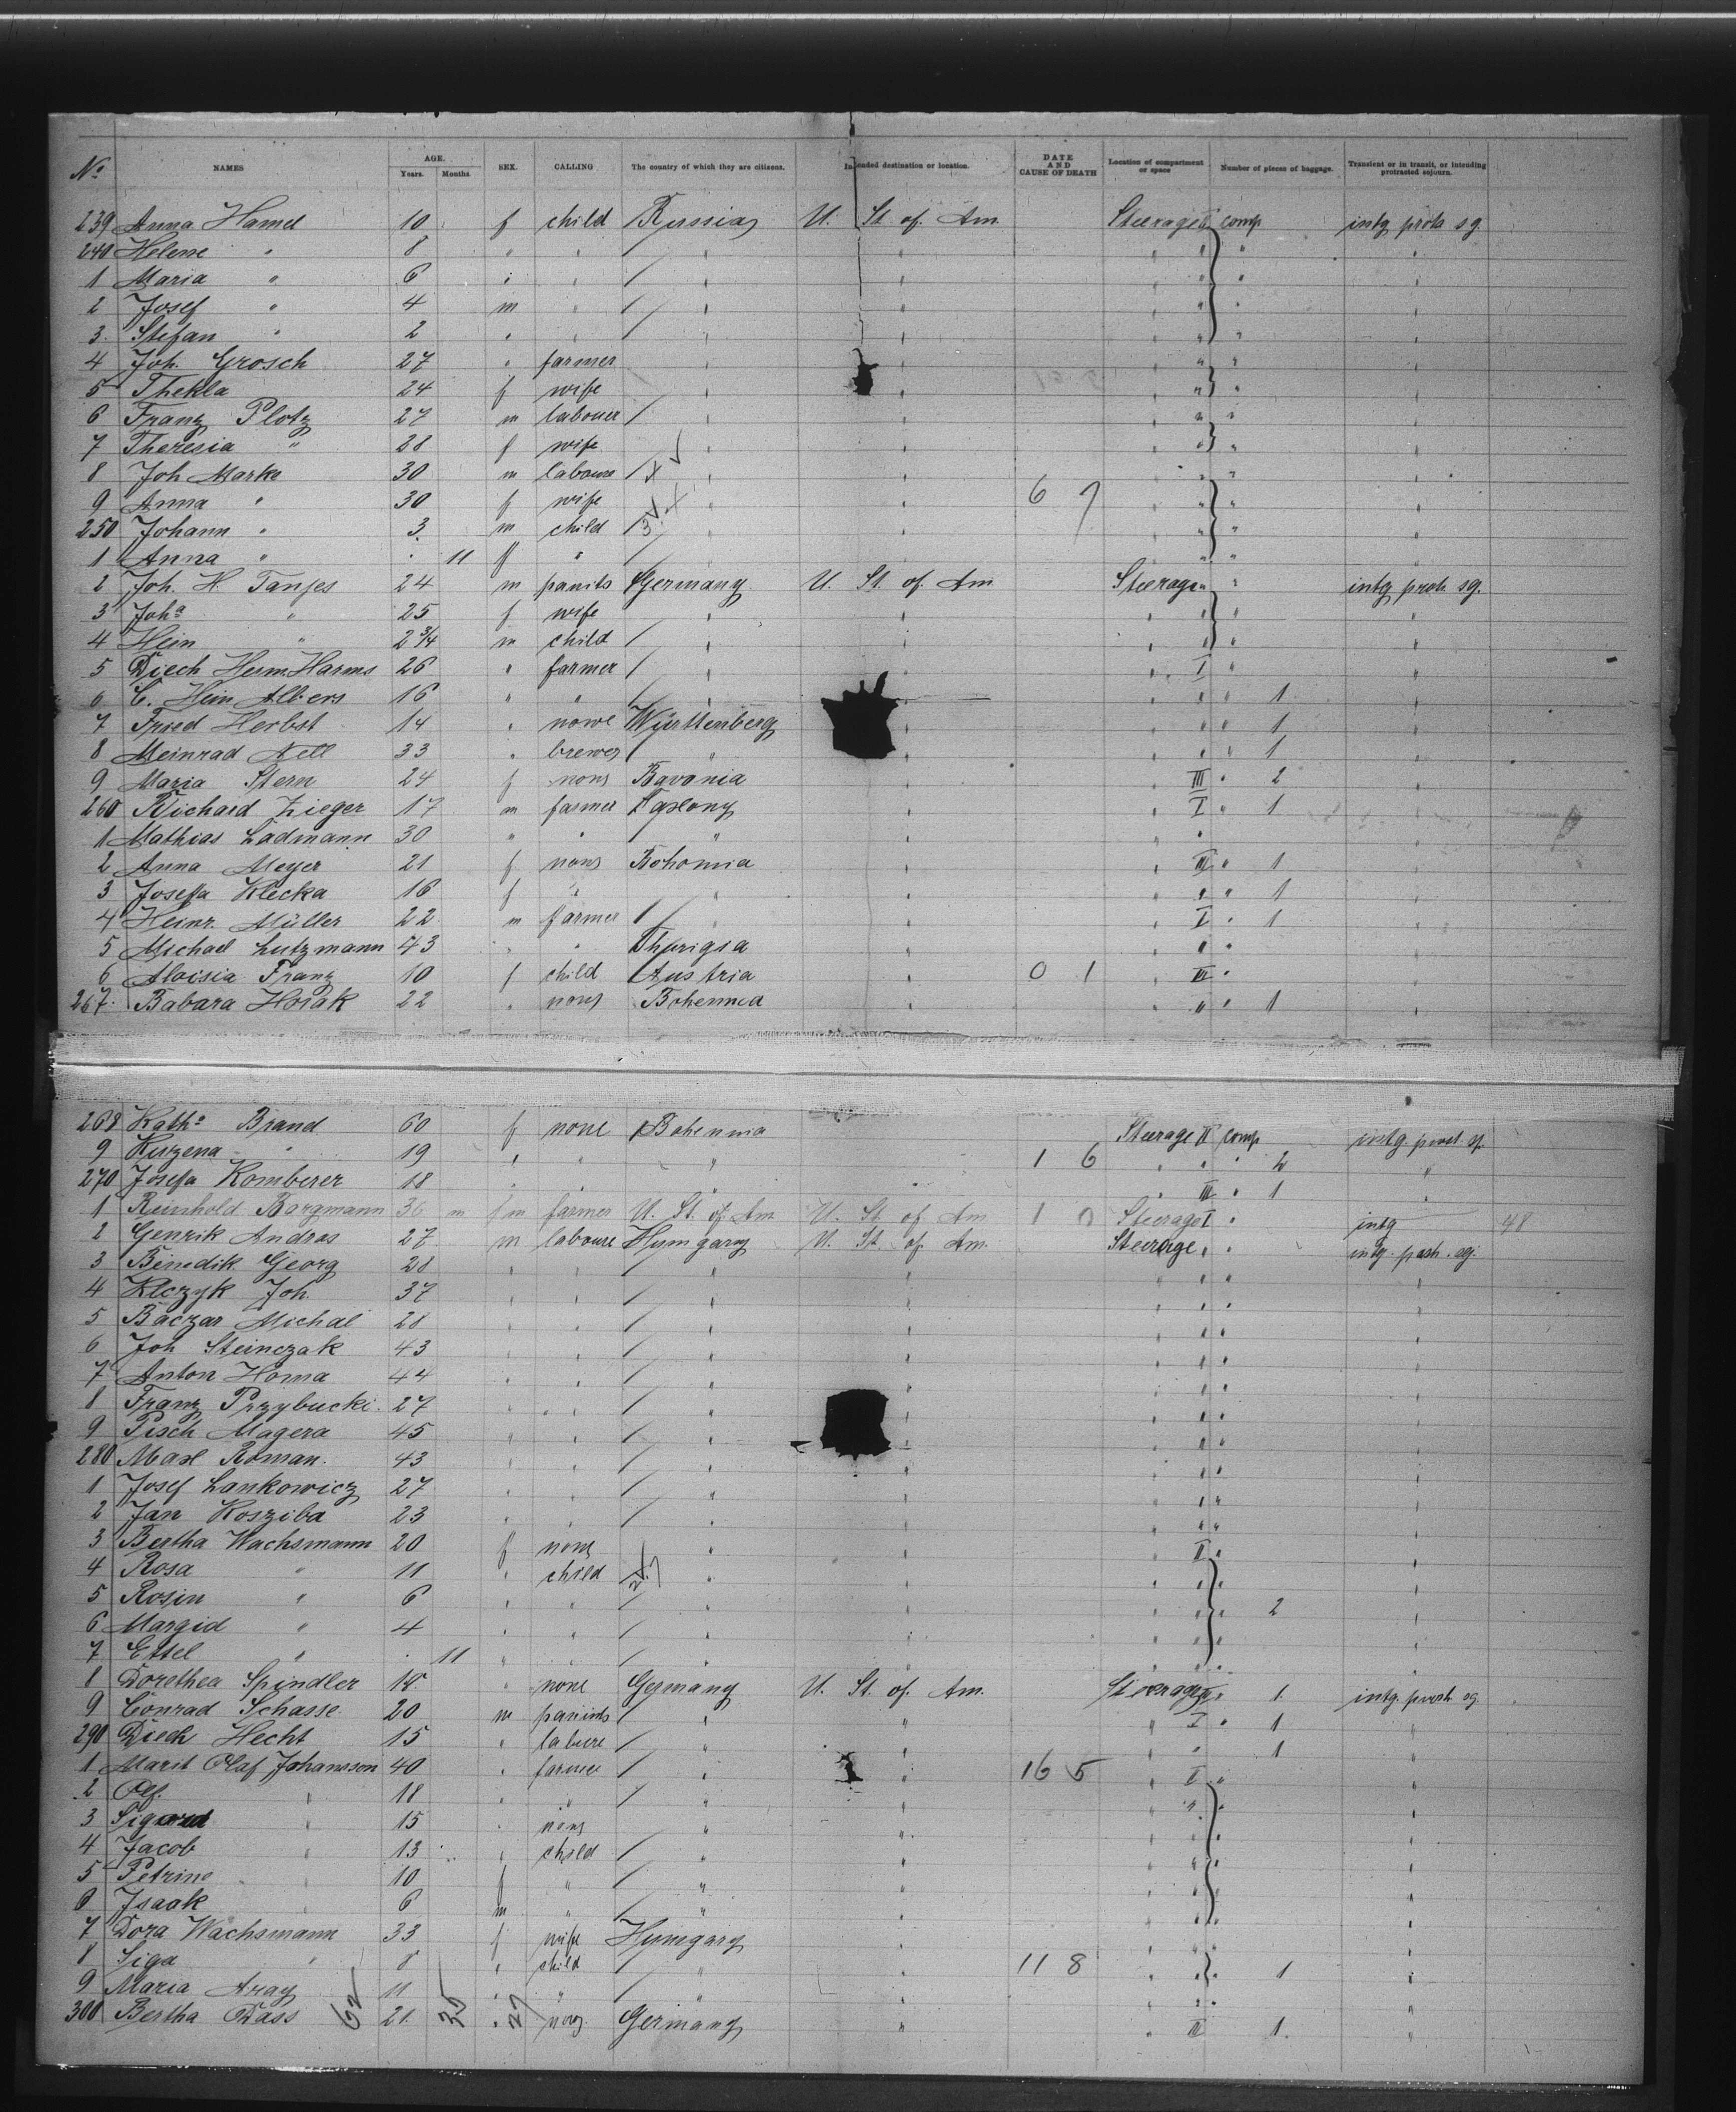 No. NAMES AGE. Years. Months. SEX. CALLING The country of which they are citizens. Intended destination or location. DATE AND CAUSE OF DEATH Location of compartment or space Number of pieces of baggage. Transient or in transit, or intending protracted sojourn.
239 Anna Hamel 10 f child Russia U. St. of. Am. Steerage comp intg protr sg.
240 Helene " 8 " " / "
1 Maria " 6 " " / "
2 Josef " 4 m " / "
3 Stefan " 2 " " / "
4 Joh. Grosch 27 " farmer "
5 Thekla 24 f wife "
6 Franz Plotz 27 m labourer / "
7 Theresia " 28 f wife "
8 Joh Marke 30 m laboure / x "
9 Anna " 30 f wife " 6 7
250 Johann " 3 m child / "
1 Anna " 11 f " / "
2 Joh. H. Tanjes 24 m Germany U. St. of. Am Steerage " intg protr. sg.
3 Joha " 25 f wife "
4 Hein " 2 3/4 m child / "
5 Diech Herm. Harms 26 " farmer / " I "
6 C. Hein Albers 16 " " / " 1
7 Fried Herbst 14 " none Württemberg " 1
8 Meinrad Aell 33 " brewer / " 1
9 Maria Stern 24 f none Bavaria " III " 2
260 Richard Zieger 17 m farmer Saxony " I " 1
1 Mathias Ladmann 30 " " "
2 Anna Meyer 21 f none Bohemia " III " 1
3 Josefa Klecka 16 f " " " 1
4 Heinr. Müller 22 m farmer / " I " 1
5 Michael Lutzmann 43 " " Thurigia "
6 Aloisia Franz 10 f child Austria " 0 1 III "
267. Babara Horak 22 " none Bohemia " 1
268 Katha Brand 60 f none Bohemia Steerage II comp intg. protr. sg.
9 Ruzena " 19 " " " 1 6 " 2
270 Josefa Komberer 18 " " " III " 1
1 Reinhold Bargmann 36 m farmer U. St. of. Am U. St. of. Am 1 0 Steerage I " intg 48
2 Genrik Andras 27 m laboure Hungary U. St. of. Am. Steerage " " intg. protr. sg.
3 Benedik Georg 28 " " / "
4 Kleczyk Joh. 37 " " / "
5 Baczar Michal 28 " " / "
6 Joh Steinczak 43 " " / "
7 Anton Homa 44 " " / "
8 Franz Przybucki. 27 " " / "
9 Pisch Magera 45 " " / "
280 Max Roman. 43 " " / "
1 Josef Lankowicz 27 " " / "
2 Jan Kosziba 23 " " / "
3 Bertha Wachsmann 20 f none " II "
4 Rosa " 11 " child "
5 Rosin " 6 " " / " 2
6 Margid " 4 " " / "
7 Ettel " 11 " " / "
8 Dorethea Spindler 18 " none Germany U. St. of. Am. Steerage " 1. intg. protr. sg.
9 Conrad Schasse. 20 m / " I " 1
290 Dieck Hecht 15 " labure / " 1
1 Marit Olaf Johansson 40 " farmer / " 16 5 II "
2 Olf. " 18 " " / "
3 Sigurd " 15 " none "
4 Jacob " 13 " child / "
5 Petrine " 10 f " / "
6 Isaak " 6 m " / "
7 Dora Wachsmann 33 f wife Hungary "
8 Siga " 8 " child / " 11 8 " 1
9 Maria Aray 11 " " / "
300 Bertha Dass 62 21. " 27 none Germany " III 1.